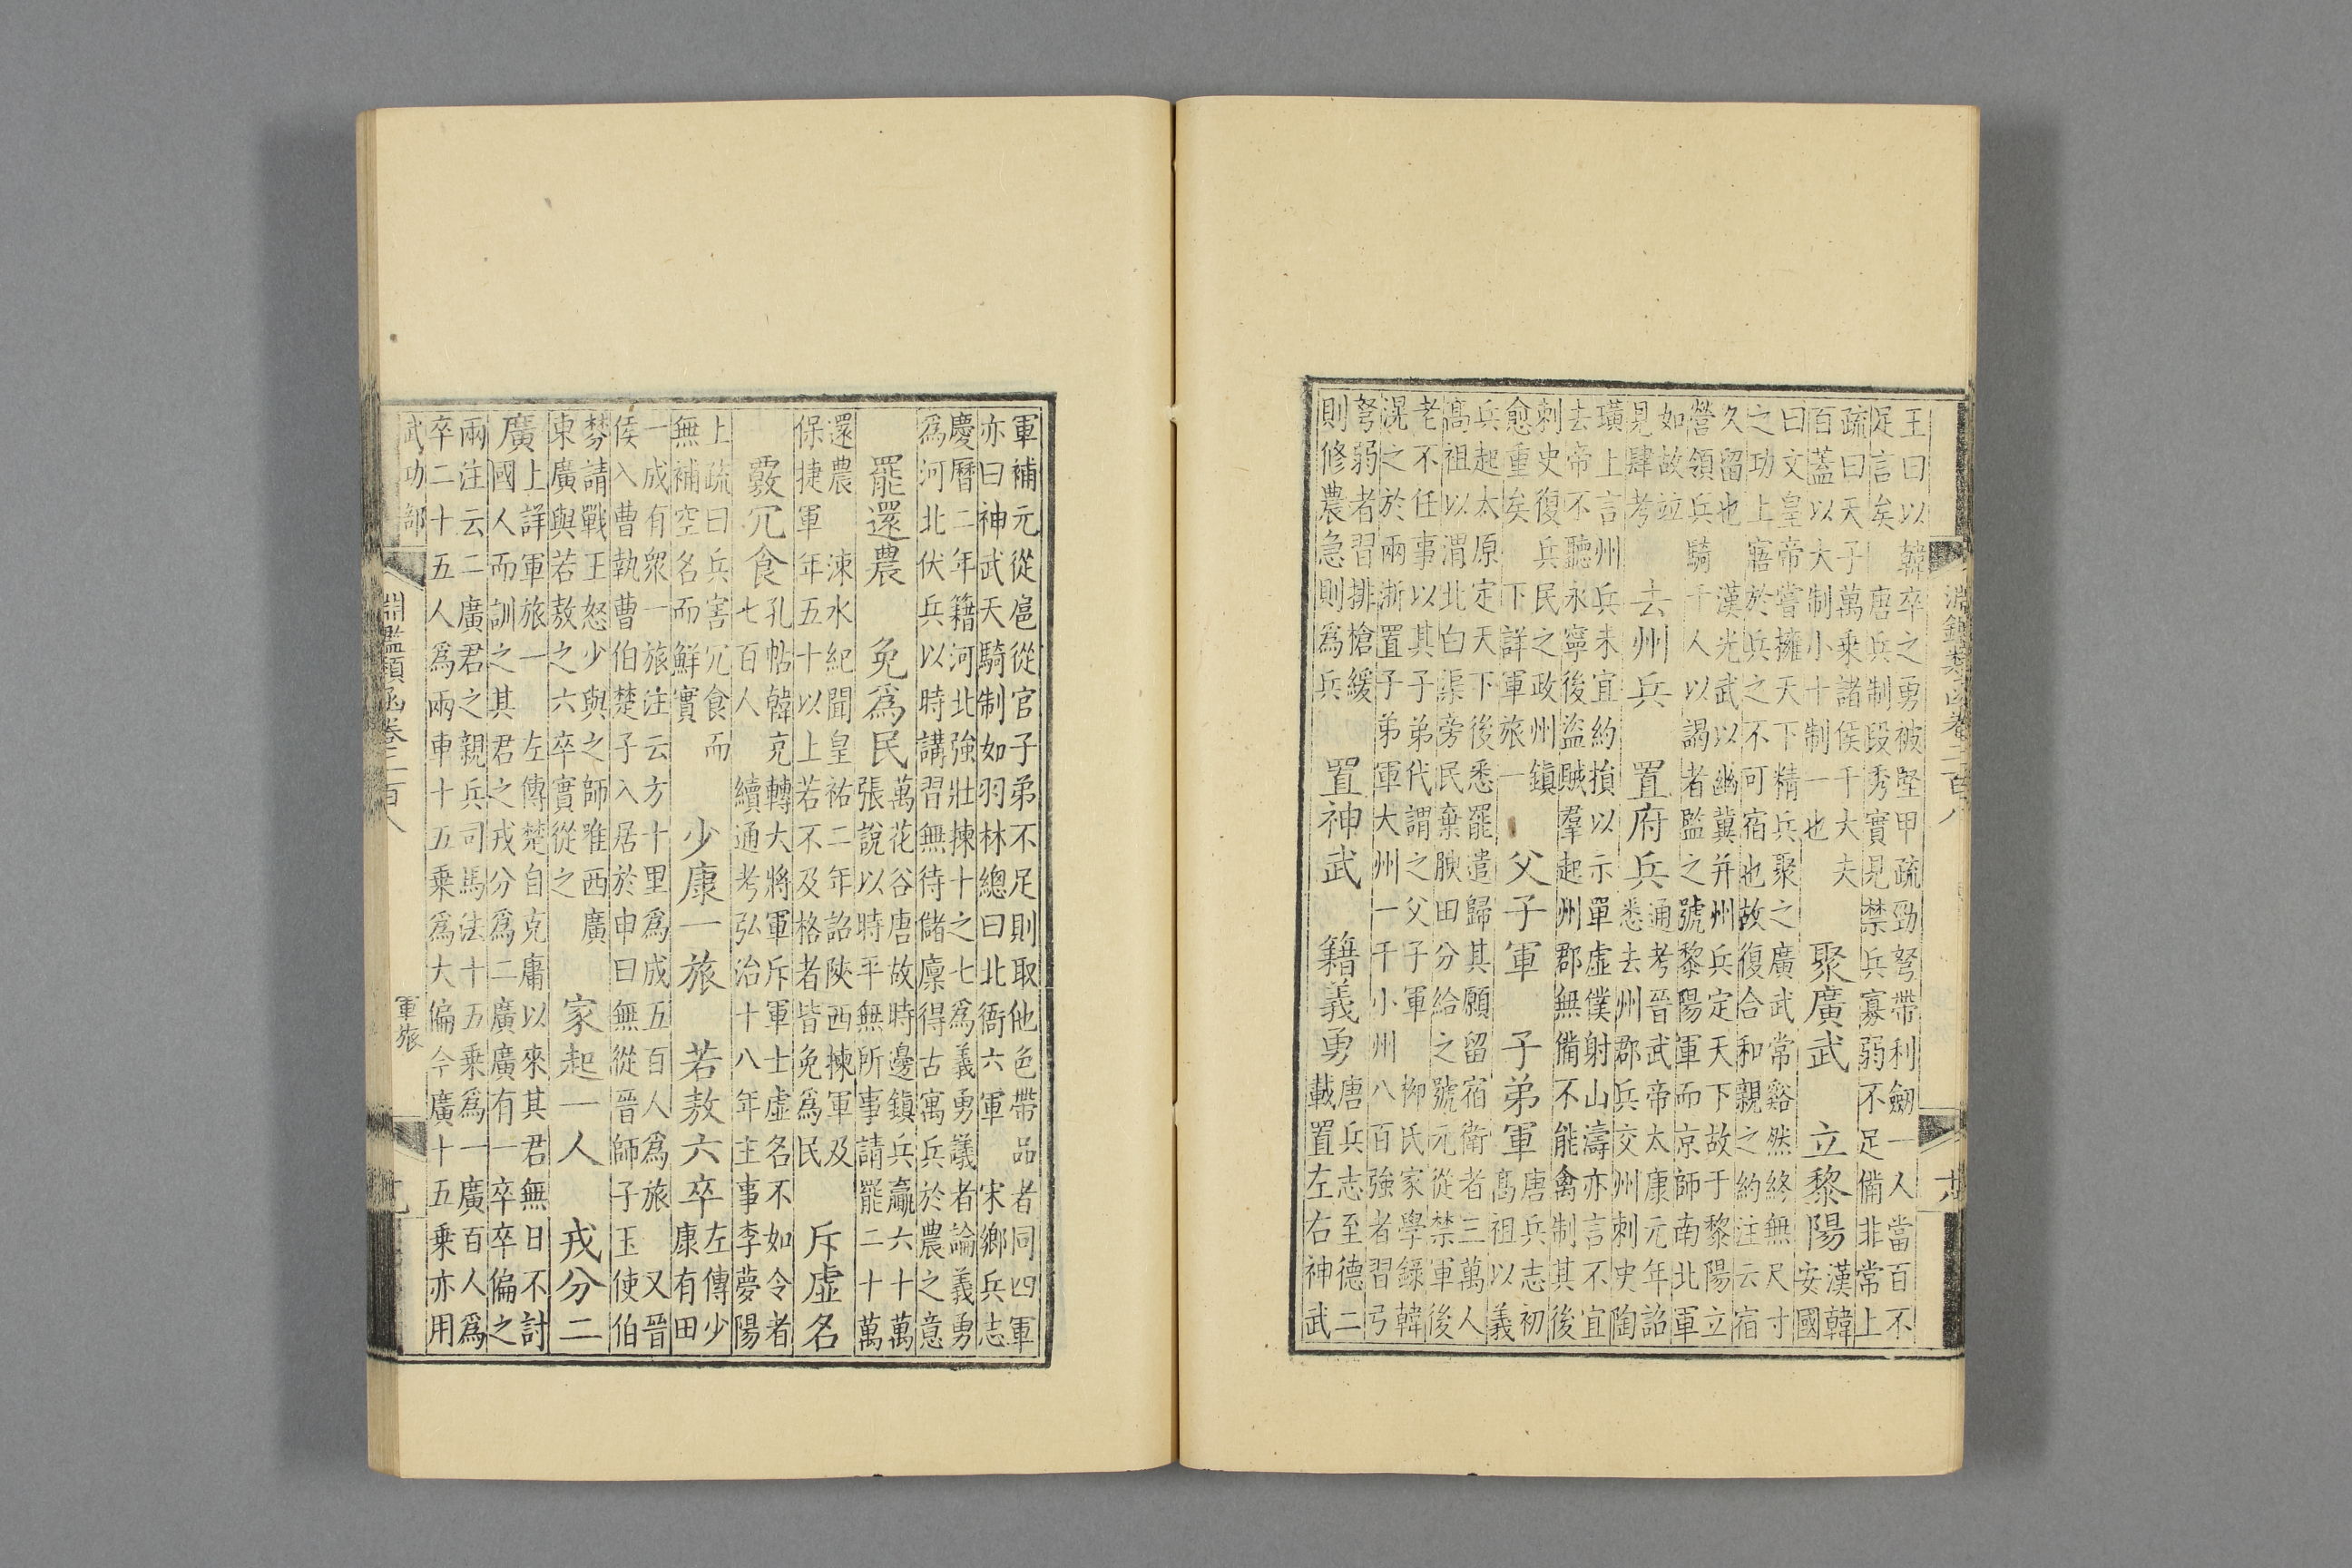 淵鑑類函卷二百八
王曰以韓卒之勇被堅甲疏勁弩帶利劒一人當百不
足言矣　唐兵制段秀實見禁兵寡弱不足備非常上
疏曰天子萬乘諸侯千大夫
百蓋以大制小十制一也
聚廣武　立黎陽
漢韓
安國
曰文皇帝嘗擁天下精兵聚之廣武常谿然終無尺寸
之功上寤於兵之不可宿也故復合和親之約注云宿
久留也　漢光武以幽冀并州兵定天下故于黎陽立
營領兵騎千人以謁者監之號黎陽軍而京師南北軍
如故竝
見肆考
去州兵　置府兵
通考晉武帝太康元年詔
悉去州郡兵交州刺史陶
璜上言州兵未宜約損以示單虛僕射山濤亦言不宜
去帝不聽永寧後盜賊羣起州郡無備不能禽制其後
刺史復兵民之政州鎮
愈重矣　下詳軍旅一
父子軍　子弟軍
唐兵志初
高祖以義
兵起太原定天下後悉罷遣歸其願留宿衛者三萬人
高祖以渭北白渠旁民棄腴田分給之號元從禁軍後
老不任事以其子弟代謂之父子軍　柳氏家學錄韓
滉之於兩浙置子弟軍大州一千小州八百強者習弓
弩弱者習排槍緩
則修農急則爲兵
置神武　籍義勇
唐兵志至德二
載置左右神武
軍補元從扈從官子弟不足則取他色帶品者同四軍
亦曰神武天騎制如羽林總曰北衙六軍　宋鄉兵志
慶曆二年籍河北強壯揀十之七爲義勇議者論義勇
爲河北伏兵以時講習無待儲廩得古寓兵於農之意
罷還農　免爲民
萬花谷唐故時邊鎮兵贏六十萬
張說以時平無所事請罷二十萬
還農　涑水紀聞皇祐二年詔陝西揀軍及
保捷軍年五十以上若不及格者皆免爲民
斥虛名
覈冗食
孔帖韓克轉大將軍斥軍士虛名不如令者
七百人　續通考弘治十八年主事李夢陽
上疏曰兵害冗食而
無補空名而鮮實
少康一旅　若敖六卒
左傳少
康有田
一成有衆一旅注云方十里爲成五百人爲旅　又晉
侯入曹執曹伯楚子入居於申曰無從晉師子玉使伯
棼請戰王怒少與之師唯西廣
東廣與若敖之六卒實從之
家起一人　戎分二
廣
上詳軍旅一　左傳楚自克庸以來其君無日不討
國人而訓之其君之戎分爲二廣廣有一卒卒偏之
兩注云二廣君之親兵司馬法十五乘爲一廣百人爲
卒二十五人爲兩車十五乘爲大偏今廣十五乘亦用
武功部
淵鑑類函卷二百八
軍旅